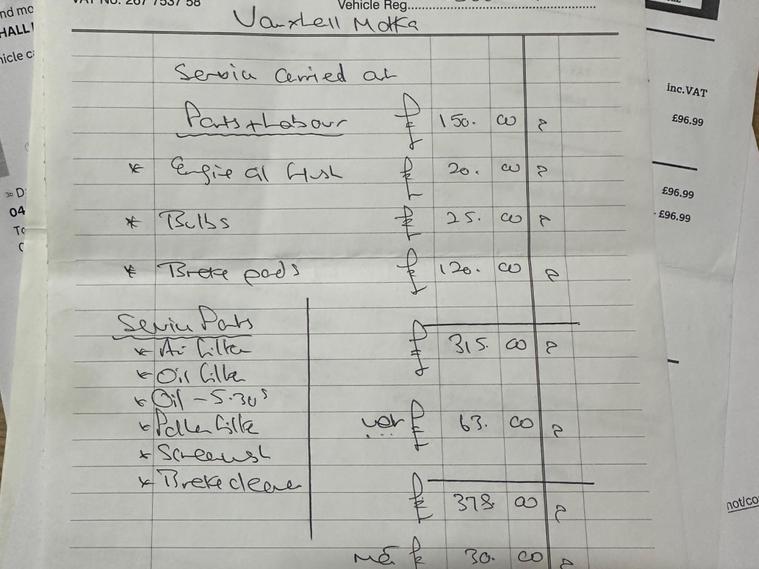 VAT No. 267 7537 58
Vehicle Reg
Vauxhall Mokka
Service Carried at
Parts + Labour £ 150. 00 p
* Engine Oil flush £ 20. 00 p
* Bulbs £ 25. 00 p
* Brake pads £ 120. 00 p
£ 315. 00 p
VAT £ 63. 00 p
£ 378 00 p
£ 30. 00 p
Service Parts
* Air filter
* Oil filter
* Oil - 5.30s
* Pollen filter
* Screenwash
* Brake cleaner
inc. VAT
£96.99
£96.99
£96.99
04